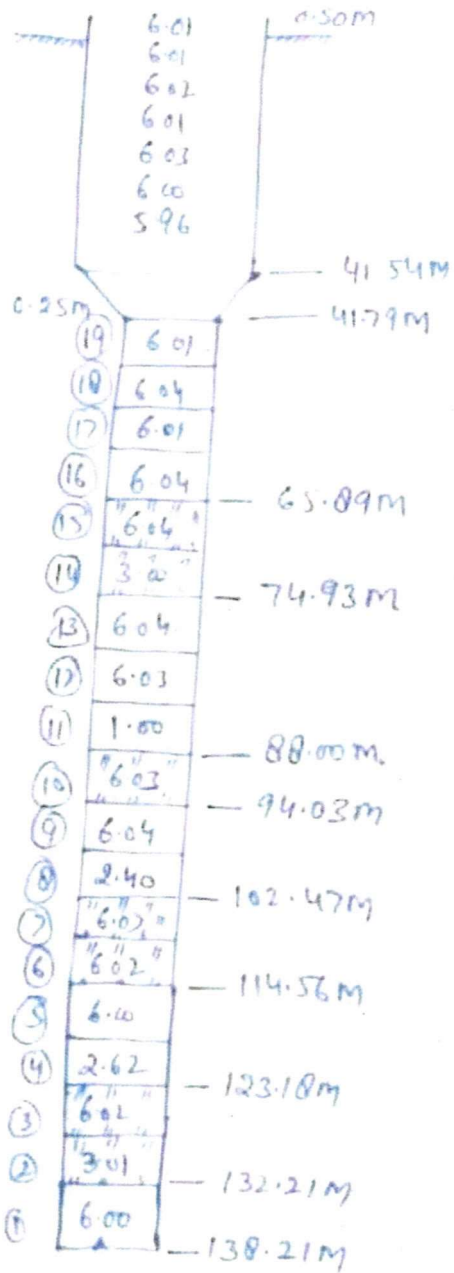 6.01 0.50M
6.01
6.02
6.01
6.03
6.00
5.96
41.54M
0.25M 41.79M
19 6.01
18 6.04
17 6.01
16 6.04
65.89M
15 6.04
14 3.00
74.93M
13 6.04
12 6.03
11 1.00
88.00M
10 6.03
94.03M
9 6.04
8 2.40
102.47M
7 6.07
6 6.02
114.56M
5 6.00
4 2.62
123.18M
3 6.02
2 3.01
132.21M
1 6.00
138.21M